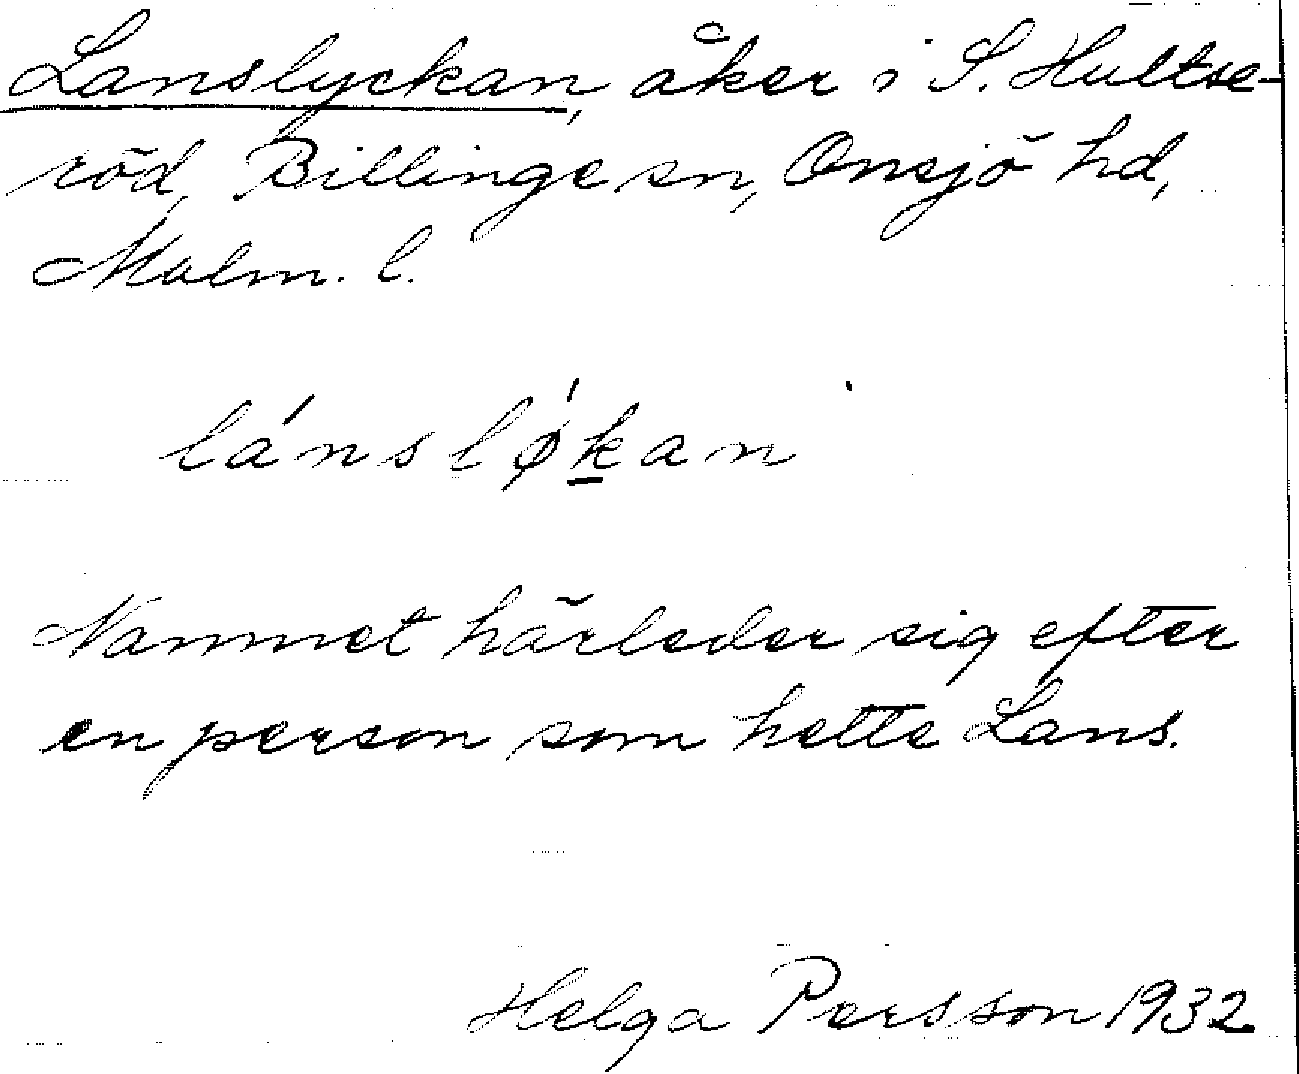 Lanslyckan, åker i S. Hultse-
röd, Billinge sn, Onsjö hd,
Malm. l.
lánslǿkan
Namnet härleder sig efter
en person som hette Lans.
Helga Persson 1932